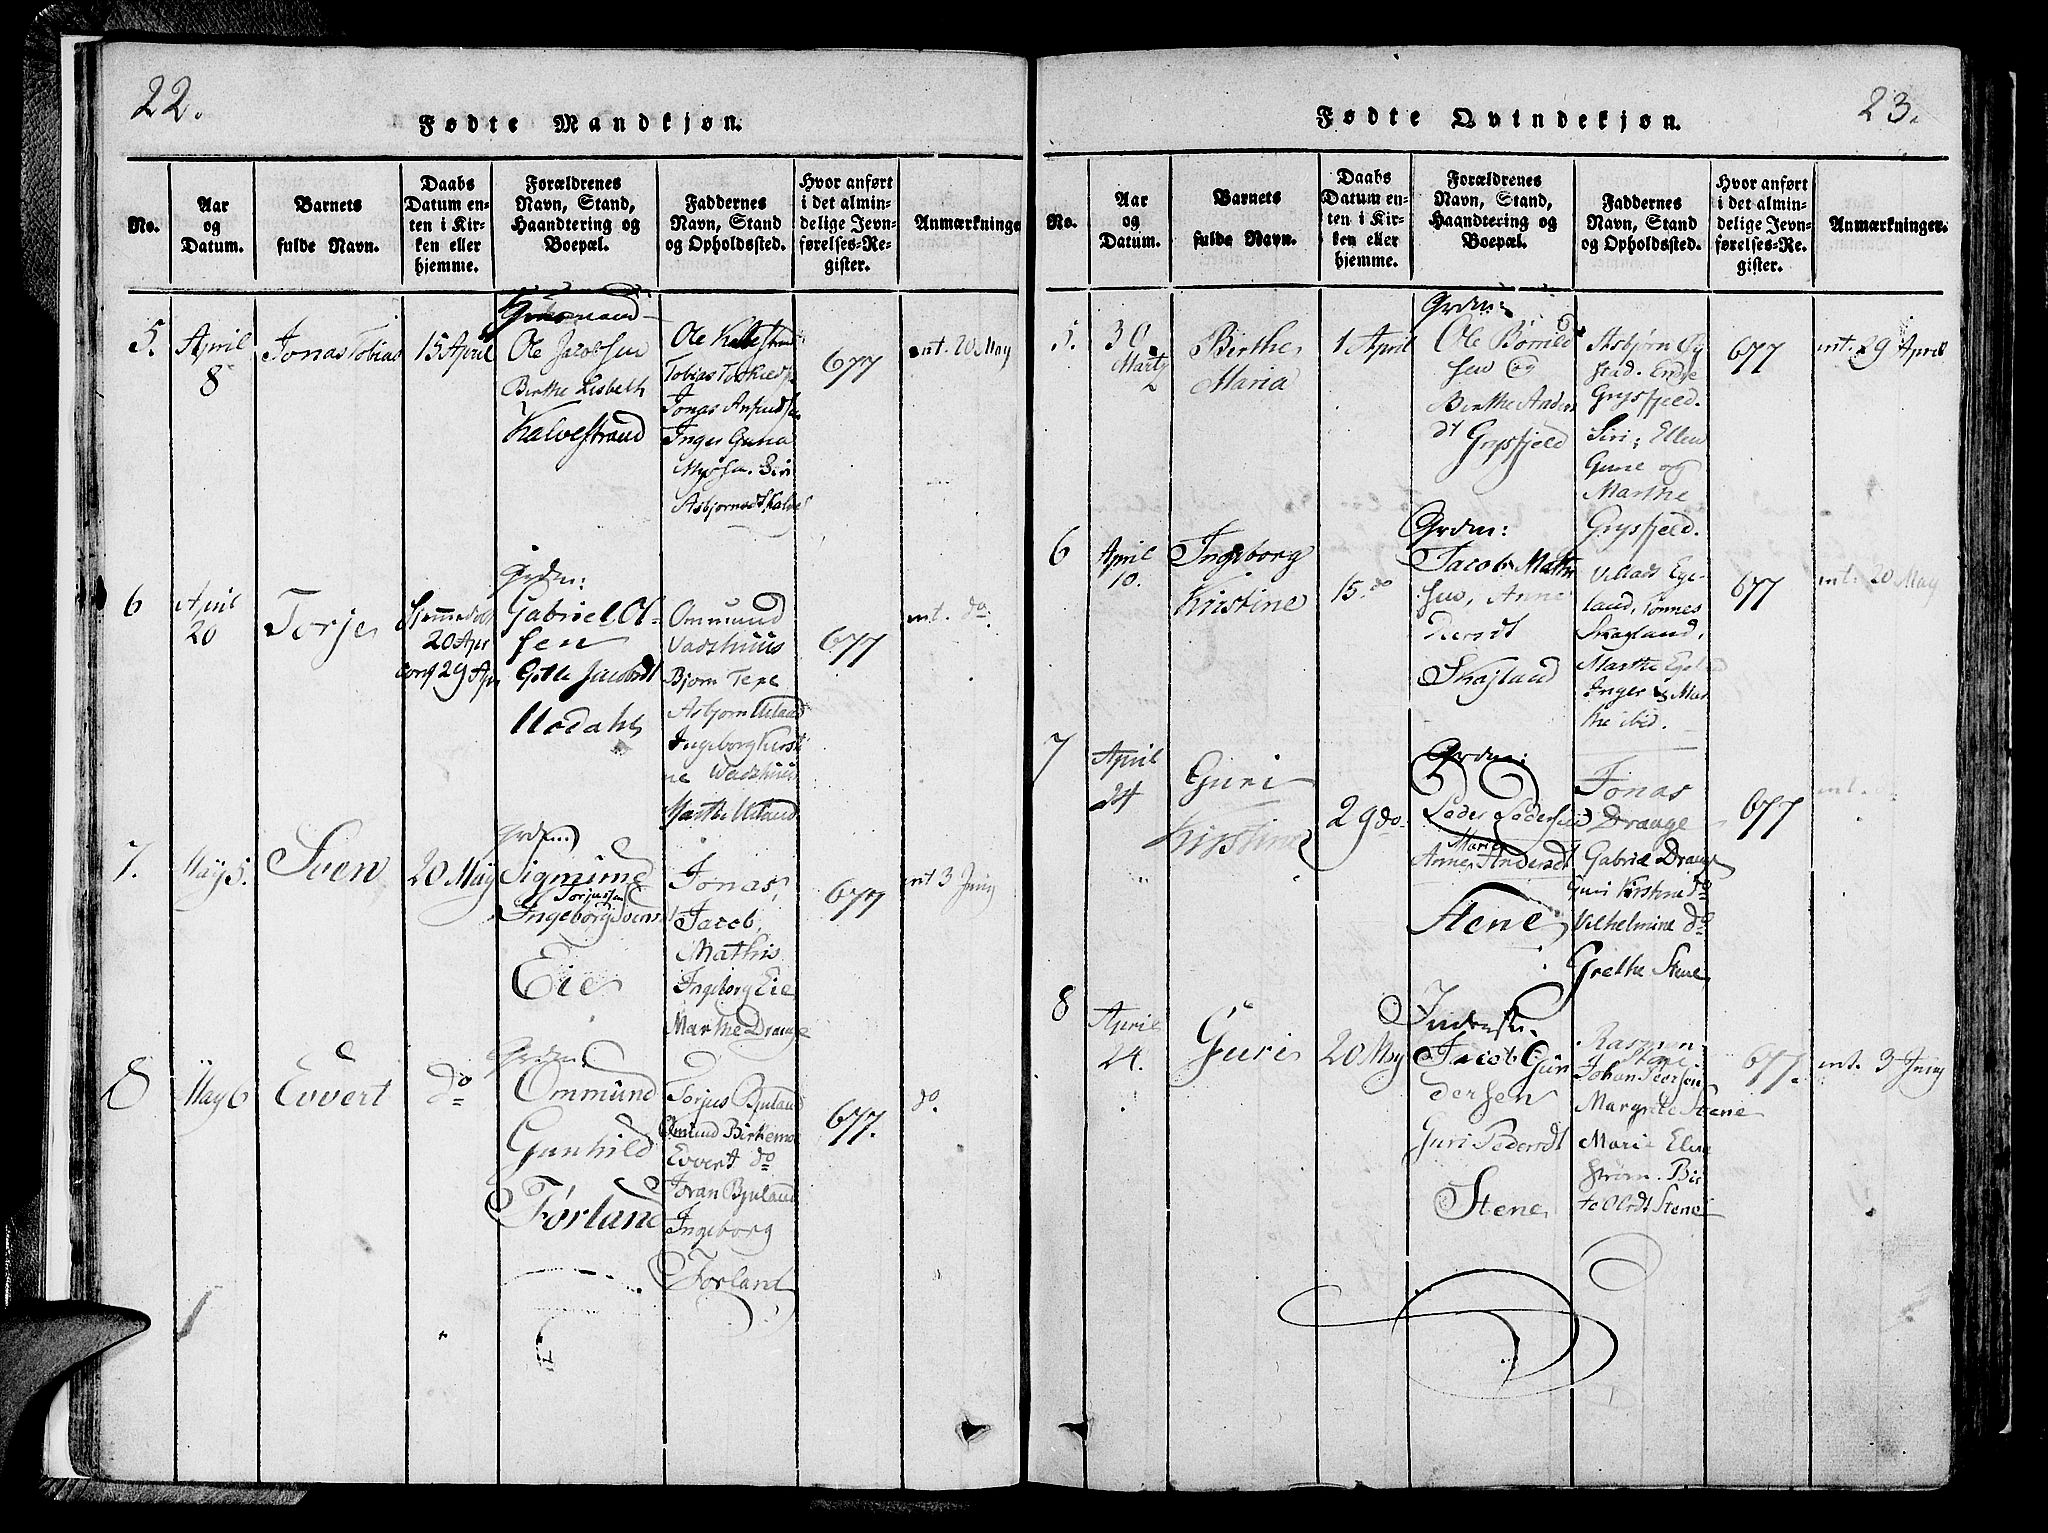 22.
Fødte Mandkjøn.
No.
Aar
og
Datum.
Barnets
fulde Navn.
Daabs
Datum en-
ten i Kir-
ken eller
hjemme.
Forældrenes
Navn, Stand,
Haandtering og
Boepæl.
Faddernes
Navn, Stand
og Opholdssted.
Hvor anført
i det almin-
delige Jevn-
førelses-Re-
gister.
Anmærkninge
5.
April
8
Jonas Tobias
15 April
Ole Jacobsen
Birthe Lisbeth
Kalvestrand
Ole
Tobias
Jonas
Inger Guna
Siri
677
20 May
6
April
20
Torje
20 Apr
29 Apr
Grdm:
Gabriel Ol-
sen
Jacobsdt
Ommund
Vadshuus
Bjørn Texe
Asbjørn Ueland
Ingeborg Kirsti
ne Wadshuus
Marthe Ueland
677
nt. do.
7.
May 5.
Sven
20 May
Grdm:
Sigmund
Torjussen
Ingeborg Svens
Eie
Jonas,
Jacob,
Mathis
Ingeborg Eie
Marthe Drange
677
nt 3 Juny
8
May 6
Evvert
do
Grdm:
Ommund
Gunhild
Førland
Torjus Bjuland
Birkemo
Evvert do
Joran Bjuland
Ingeborg
Førland
677.
do.
23.
Fødte Qvindekjøn.
No.
Aar
og
Datum.
Barnets
fulde Navn.
Daabs
Datum en-
ten i Kir-
ken eller
hjemme.
Forældrenes
Navn, Stand,
Haandtering og
Boepæl.
Faddernes
Navn, Stand
og Opholdssted.
Hvor anført
i det almin-
delige Jevn-
førelses-Re-
gister.
Anmærkninger.
5.
30
Marty
Birthe
Maria
1 April
Grdm:
Ole
sen og
Birthe Anders
dt
Grysfjeld
Asbjørn Øy
stad. Endre
Grysfjeld.
Siri, Ellen
Gune og
Marthe
Grysfjeld.
677
nt. 29 April
6
April
10.
Ingeborg
Kirstine
15. do
Grdm:
Jacob
sen, Anne
Skogland
Villads Ege-
land, Tønnes
Skogland,
Marthe
Inger & Mar
the ibid.
677
nt. 20 May
7
April
24
Guri
Kirstine
29 do.
Grdm:
Peder Pedersen
Marie
Anne Andersdt
Stene
Jonas
Drange
Gabriel Drange
Guri Kirstine do
Vilhelmine do
Grethe Stene
677
nt. do
8
April
24.
Guri
20 May
Jacob Gun
dersen
Guri Pedersdt
Stene
Rasmus
Stene
Johan Pedersen
Margrete Stene
Marie Elene
Strøm. Bir
te Olsdt Stene
677.
nt. 3 Juny